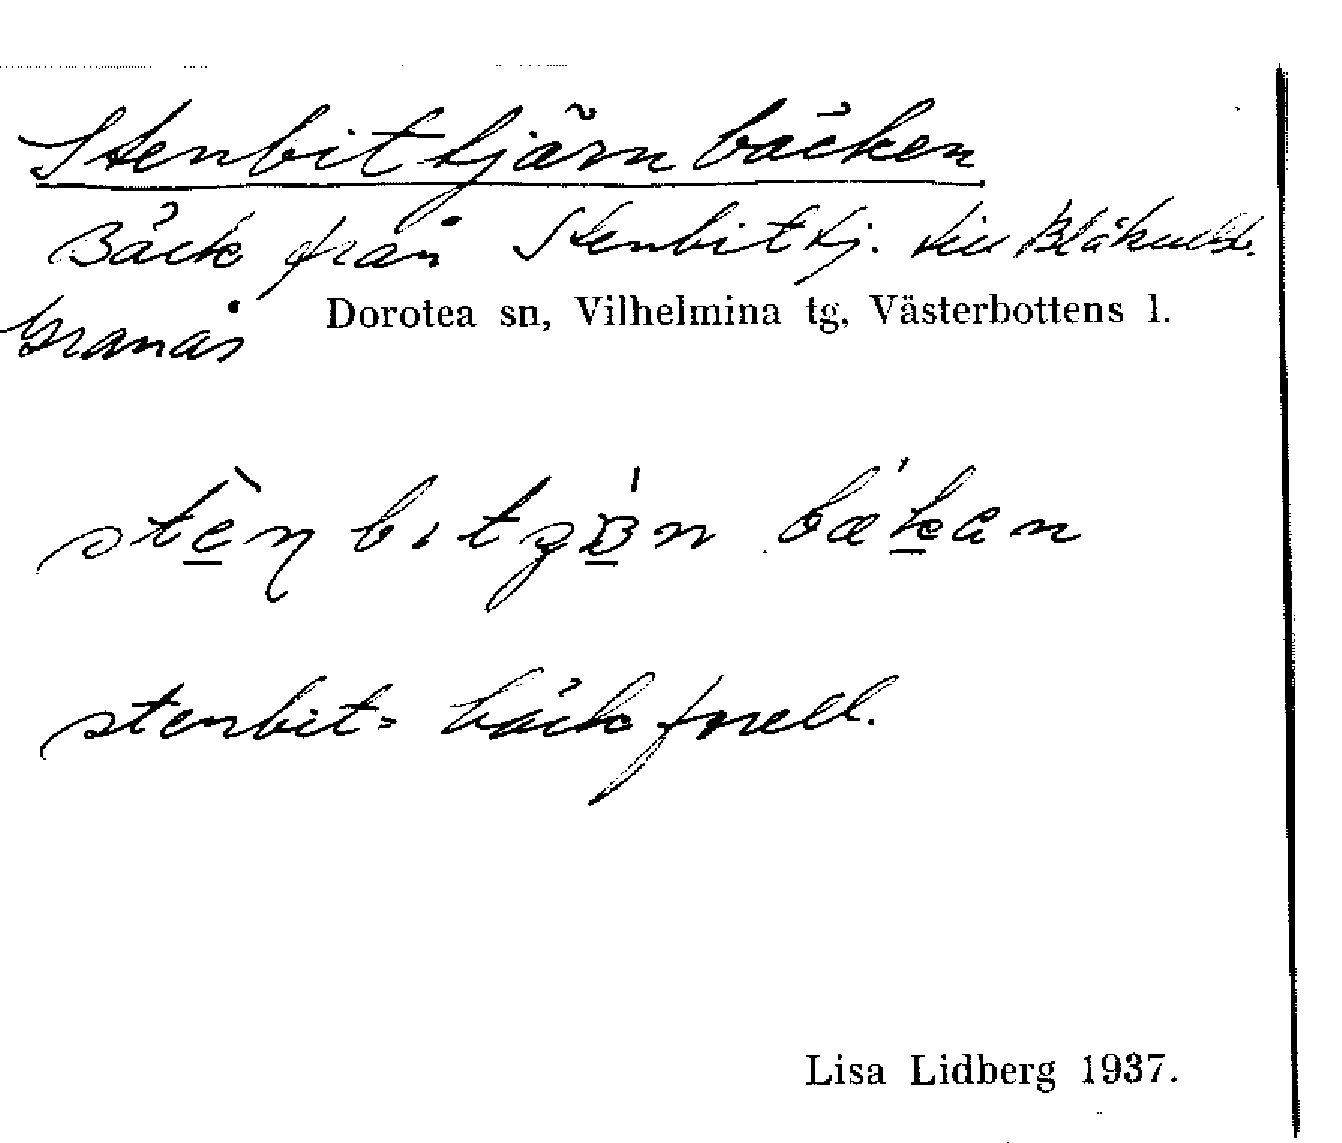 Stenbittjärnbäcken
Bäck från Stenbittj. till
Granås Dorotea sn, Vilhelmina tg, Västerbottens l.
stenbit = bäckforell.
Lisa Lidberg 1937.